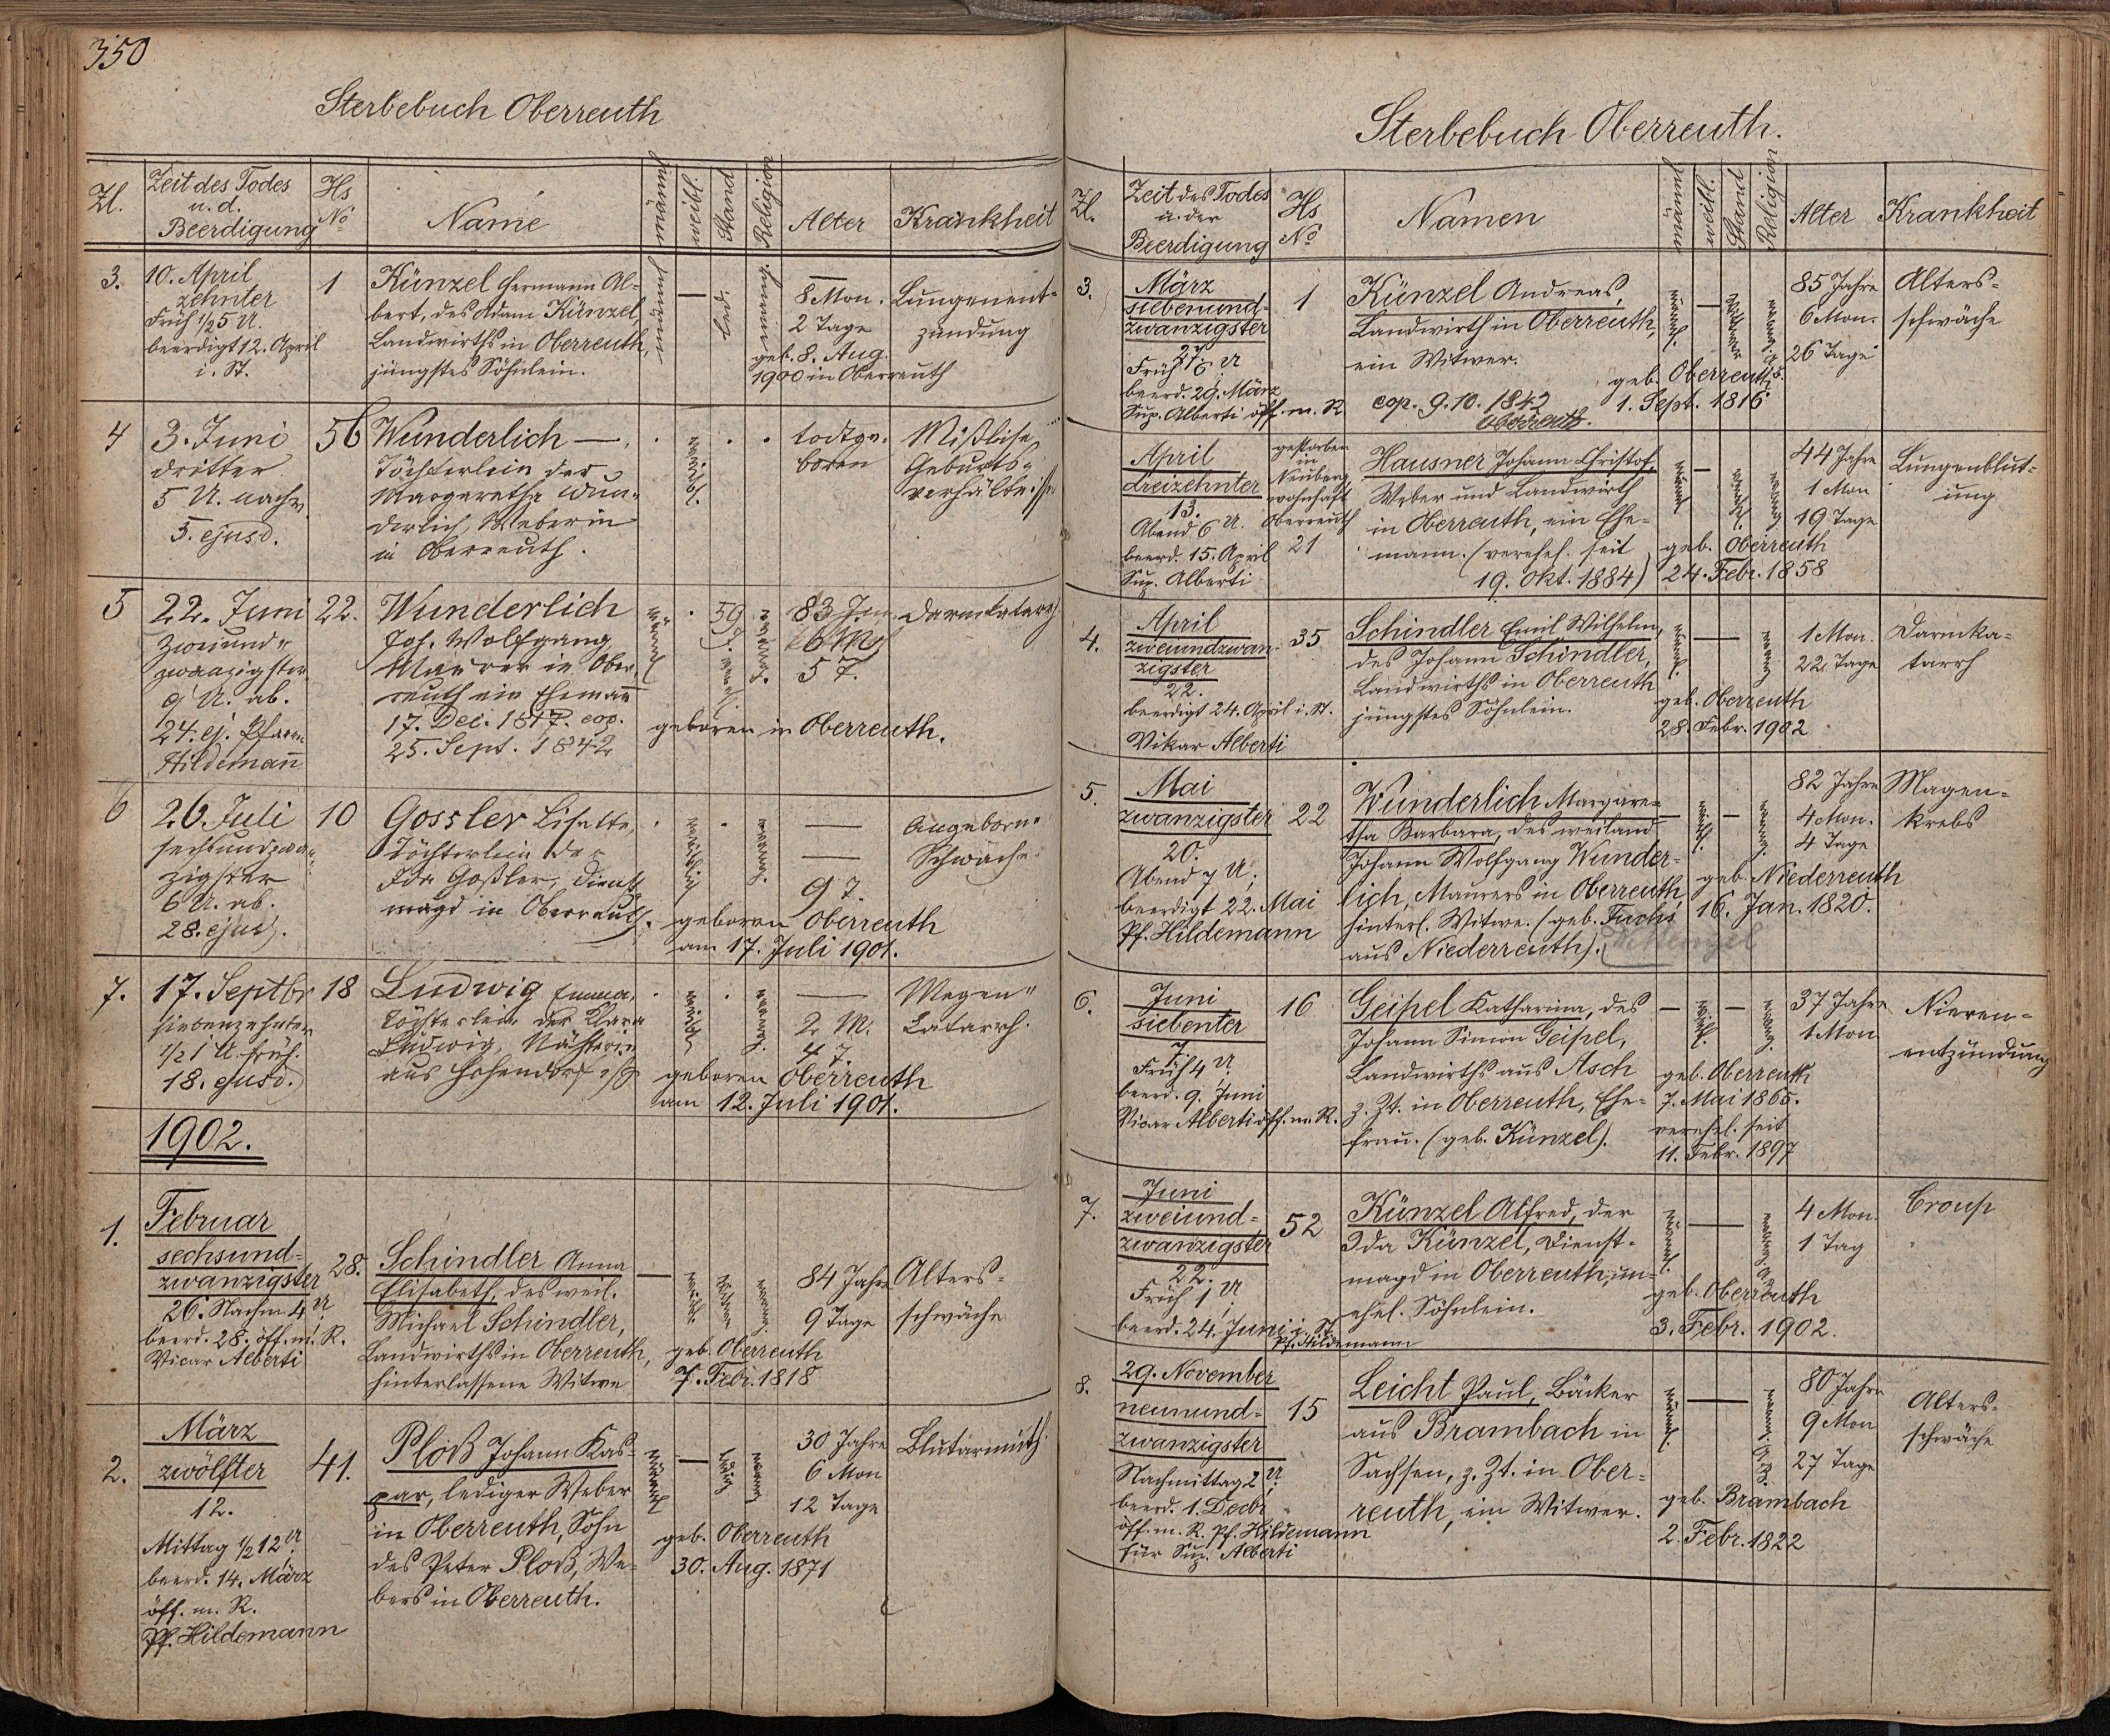 350
Sterbebuch Oberreuth
Zl.
Zeit des Todes
u. d.
Beerdigung
Hs
No
Name
männl
weibl.
Stand
Religion
Alter
Krankheit
3.
10. April
zehnter
Früh 1/2 5 U.
beerdigt 12. April
i. St.
1
Künzel Hermann Al-
bert, des Adam Künzel,
Landwirths in Oberreuth,
jüngstes Söhnlein.
männl
—
led.
evang.
8 Mon.
2 Tage
geb. 8. Aug.
1900 in Oberreuth
Lungenent-
zündung
4
3. Juni
dritter
5 U. nachm.
5. ejusd.
56
Wunderlich —.
Töchterlein der
Margaretha Wun-
derlich, Weberin
in Oberreuth.
weibl.
todtge-
boren
Mißliche
Geburts-
verhältnisse
5
22. Juni
Zweiund-
zwanzigster
9 U. ab.
24. ej. Pfarrer
Hildemann
22.
Wunderlich
Joh. Wolfgang
Maurer in Ober-
reuth ein Ehemann
17. Dec. 1817. cop.
25. Sept. 1842
männl
59
J.
83 J.
6 M.
5 T.
geboren in Oberreuth.
Darmkatarrh
6
26. Juli
sechsundzwan-
zigster
6 U. ab.
28. ejusd.
10
Gossler Lisette,
Töchterlein der
Ida Goßler, Dienst-
magd in Oberreuth.
weiblich
evang.
—
—
9 T.
geboren Oberreuth
am 17. Juli 1901.
Angeborne
Schwäche.
7.
17. Septbr
siebenzehnter
1/2 1 U. früh.
18. ejusd.
18
Ludwig Emma,
Töchterlein der Klara
Ludwig, Nähterin
aus Hohendorf
weibl
evang.
—
2 M.
4 T.
geboren Oberreuth
am 12. Juli 1901.
Magen-
Catarrh.
1902.
1.
Februar
sechsund-
zwanzigster
26. Nachm 4 U.
beerd. 28. öff. m. R.
Vicar Alberti
28.
Schindler Anna
Elisabeth, des weil.
Michael Schindler,
Landwirths in Oberreuth,
hinterlassene Witwe
—
weibl.
Witwe
evang.
84 Jahre
9 Tage
geb. Oberreuth
7. Febr. 1818
Alters-
schwäche
2.
März
zwölfter
12.
Mittag 1/2 12 U.
beerd. 14. März
öff. m. R.
Pf. Hildemann
41.
Ploß Johann Kas-
par, lediger Weber
in Oberreuth, Sohn
des Peter Ploß, We-
bers in Oberreuth.
männl
—
ledig
evang
30 Jahre
6 Mon
12 Tage
geb. Oberreuth
30. Aug. 1871
Blutarmuth.
Sterbebuch Oberreuth.
Zl.
Zeit des Todes
u. der
Beerdigung
Hs
No
Namen
männl
weibl.
Stand
Religion
Alter
Krankheit
3.
März
siebenund-
zwanzigster
27.
Früh 1/6 U
beerd. 29. März
Sup. Alberti öff. m. R.
1
Künzel Andreas,
Landwirth in Oberreuth,
ein Witwer.
cop. 9.10.1842
Oberreuth.
männl.
—
Witwer
85 Jahre
6 Mon.
26 Tage
geb. Oberreuth
1. Sept. 1816
Alters-
schwäche
April
dreizehnter
13.
Abend 6 U.
beerd. 15. April
Sup. Alberti
gestorben
in
Neuberg,
wohnhaft
Oberreuth
21
Hausner Johann Christof,
Weber und Landwirth
in Oberreuth, ein Ehe-
mann. (verehel. seit
19. Okt. 1884)
männl
—
verehl.
evang
44 Jahre
1 Mon
19 Tage
geb. Oberreuth
24. Febr. 1858
Lungenblut-
ung
4.
April
zweiundzwan-
zigster
22.
beerdigt 24. April i. St.
Vikar Alberti
35
Schindler Emil Wilhelm,
des Johann Schindler,
Landwirths in Oberreuth
jüngstes Söhnlein.
männl.
—
evang
1 Mon.
22 Tage
geb. Oberreuth
28. Febr. 1902
Darmka-
tarrh
5.
Mai
zwanzigster
20.
Abend 7 U;
beerdigt 22. Mai
Pf. Hildemann
22
Wunderlich Margare-
tha Barbara, des weiland
Johann Wolfgang Wunder-
lich, Maurers in Oberreuth
hinterl. Witwe. (geb. Fuchs
aus Niederreuth).
weibl.
—
evang.
82 Jahre
4 Mon.
4 Tage
geb. Niederreuth
16. Jan. 1820.
Magen-
krebs
6.
Juni
siebenter
7.
Früh 4 U.
beerd. 9. Juni
Vicar Alberti öff. m. R.
16
Geipel Katharina, des
Johann Simon Geipel,
Landwirths aus Asch
z. Zt. in Oberreuth, Ehe-
frau. (geb. Künzel).
—
weibl.
—
evang.
37 Jahre
1 Mon
geb. Oberreuth
7. Mai 1865.
verehel. seit
11. Febr. 1897
Nieren-
entzündung
7.
Juni
zweiund-
zwanzigster
22.
Früh 1 U.
beerd. 24. Juni i. St.
Pf. Hildemann
52
Künzel Alfred, der
Ida Künzel, Dienst-
magd in Oberreuth, un-
ehel. Söhnlein.
männl.
—
4 Mon.
1 Tag
geb. Oberreuth
3. Febr. 1902.
Croup
8.
29. November
neunund-
zwanzigster
Nachmittag 2 U.
beerd. 1. Decbr.
öff. m. R. Pf. Hildemann
für Sup. Alberti
15
Leicht Paul, Bäcker
aus Brambach in
Sachsen, z. Zt. in Ober-
reuth, ein Witwer.
männl.
—
80 Jahre
9 Mon
27 Tage
geb. Brambach
2. Febr. 1822
Alters-
schwäche